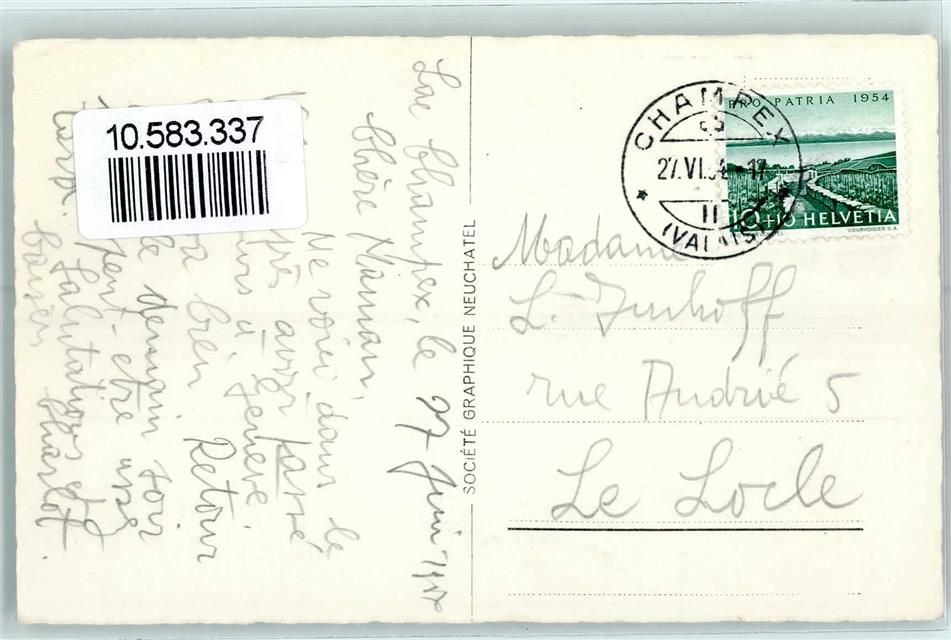 10.583.337
Lac Champex, le 27 Juin 1954
Chère Maman,
Me voici dans le
après avoir passé
jours à Genève.
bien Retour
demain soir
peut-être assez
tard. Salutations et
baisers Charlot
SOCIÉTÉ GRAPHIQUE NEUCHATEL
CHAMPEX
27.VI.54-17
II
(VALAIS)
PRO PATRIA 1954
10+10 HELVETIA
COURVOISIER S.A.
Madame
L. Imhoff
rue Andrié 5
Le Locle